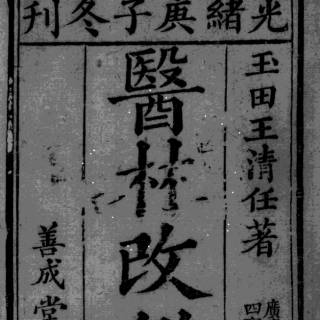 光緒庚子冬刊
玉田王清任著
醫林改
善成堂